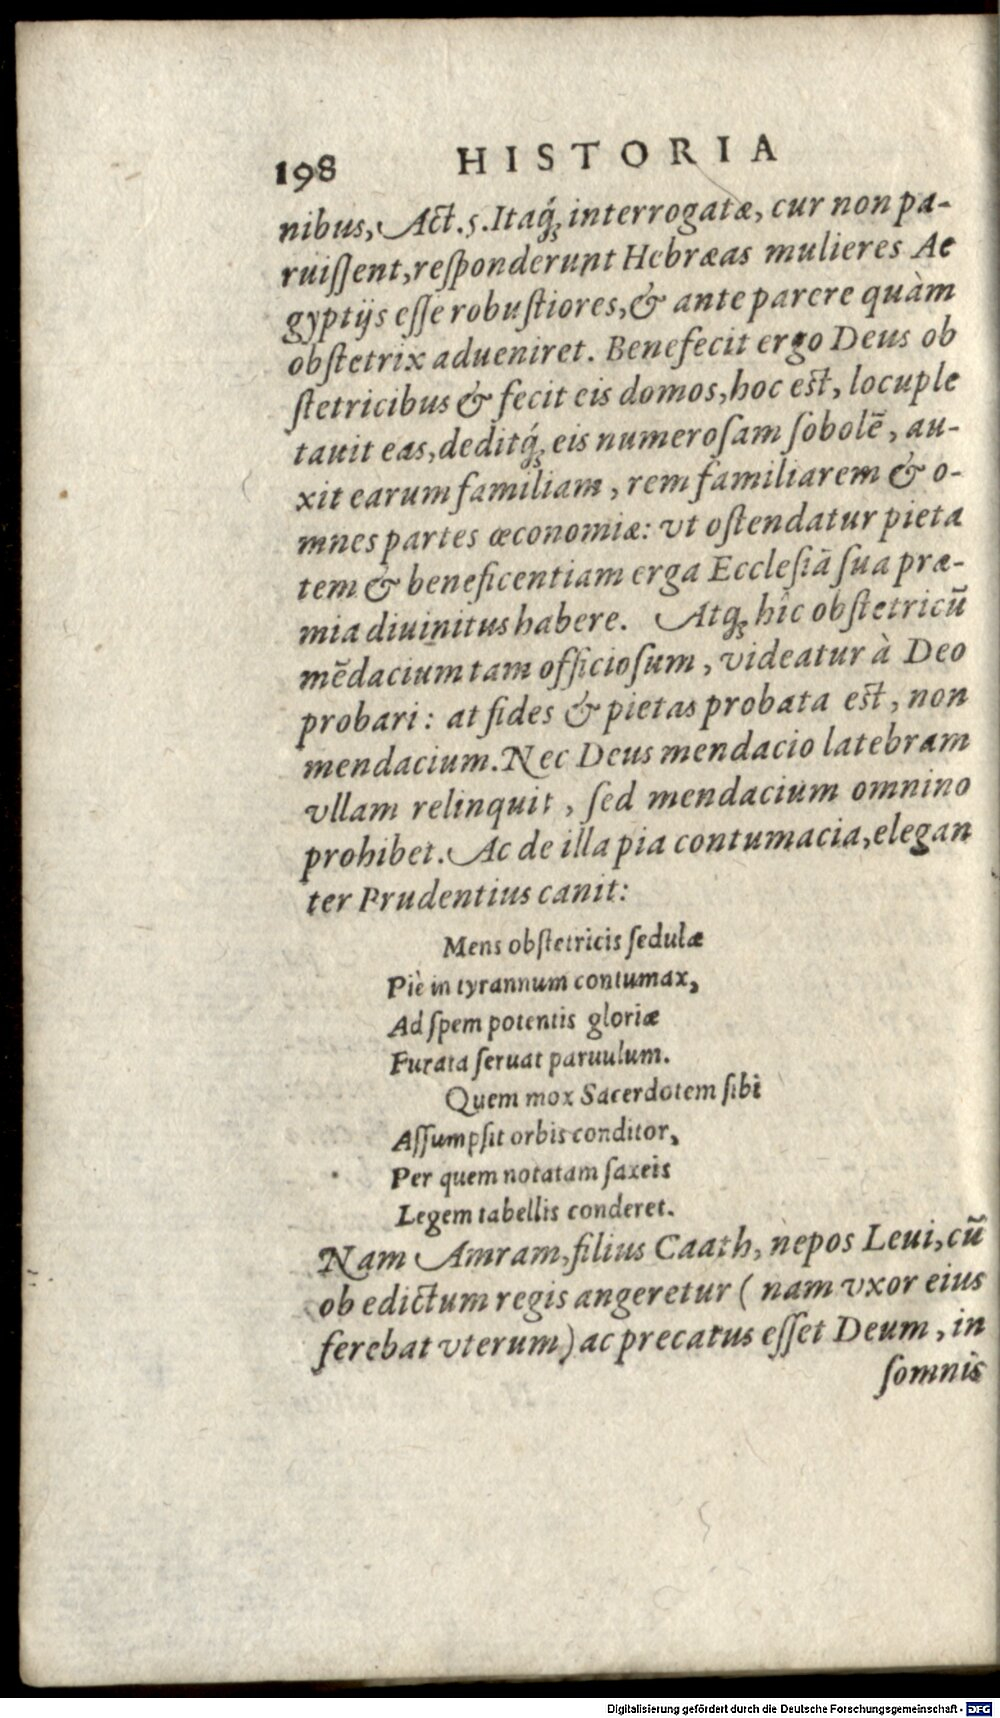 198 HISTORIA
nibus, Act. 5. Itaq́; interrogatæ, cur non pa-
ruiſſent, reſponderunt Hebræas mulieres Ae
gyptijs eſſe robuſtiores, & ante parere quàm
obſtetrix adueniret. Benefecit ergo Deus ob
ſtetricibus & fecit eis domos, hoc eſt, locuple
tauit eas, deditq́; eis numeroſam ſobolē, au-
xit earum familiam, rem familiarem & o-
mnes partes œconomiæ: vt oſtendatur pieta
tem & beneficentiam erga Eccleſiā ſua præ-
mia diuinitus habere. Atq; hîc obſtetricū
mēdacium tam officioſum, videatur à Deo
probari: at fides & pietas probata eſt, non
mendacium. Nec Deus mendacio latebram
vllam relinquit, ſed mendacium omnino
prohibet. Ac de illa pia contumacia, elegan
ter Prudentius canit:
Mens obſtetricis ſedulæ
Piè in tyrannum contumax,
Ad ſpem potentis gloriæ
Furata ſeruat paruulum.
Quem mox Sacerdotem ſibi
Aſſumpſit orbis conditor,
Per quem notatam ſaxeis
Legem tabellis conderet.
Nam Amram, filius Caath, nepos Leui, cū
ob edictum regis angeretur ( nam vxor eius
ferebat vterum) ac precatus eſſet Deum, in
ſomnis
Digitalisierung gefördert durch die Deutsche Forschungsgemeinschaft - DFG